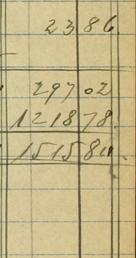 2386.
29702
121878.
151580.